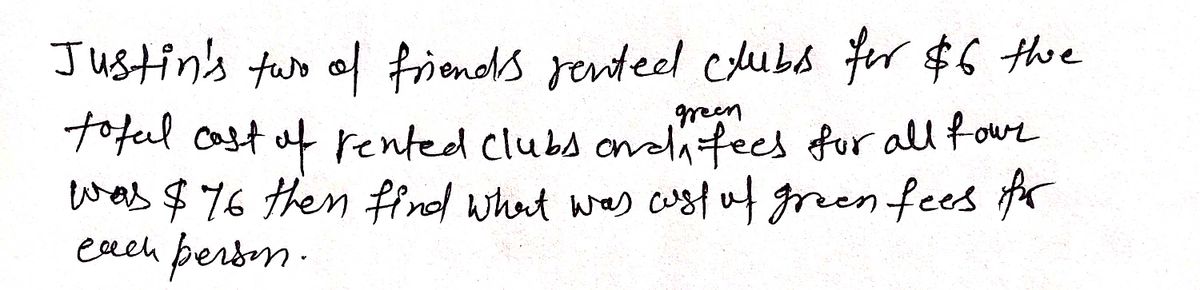 Justin's two of friends rented clubs for $6 the
total cost of rented clubs and green fees for all four
was $76 then find what was cost of green fees for
each person.